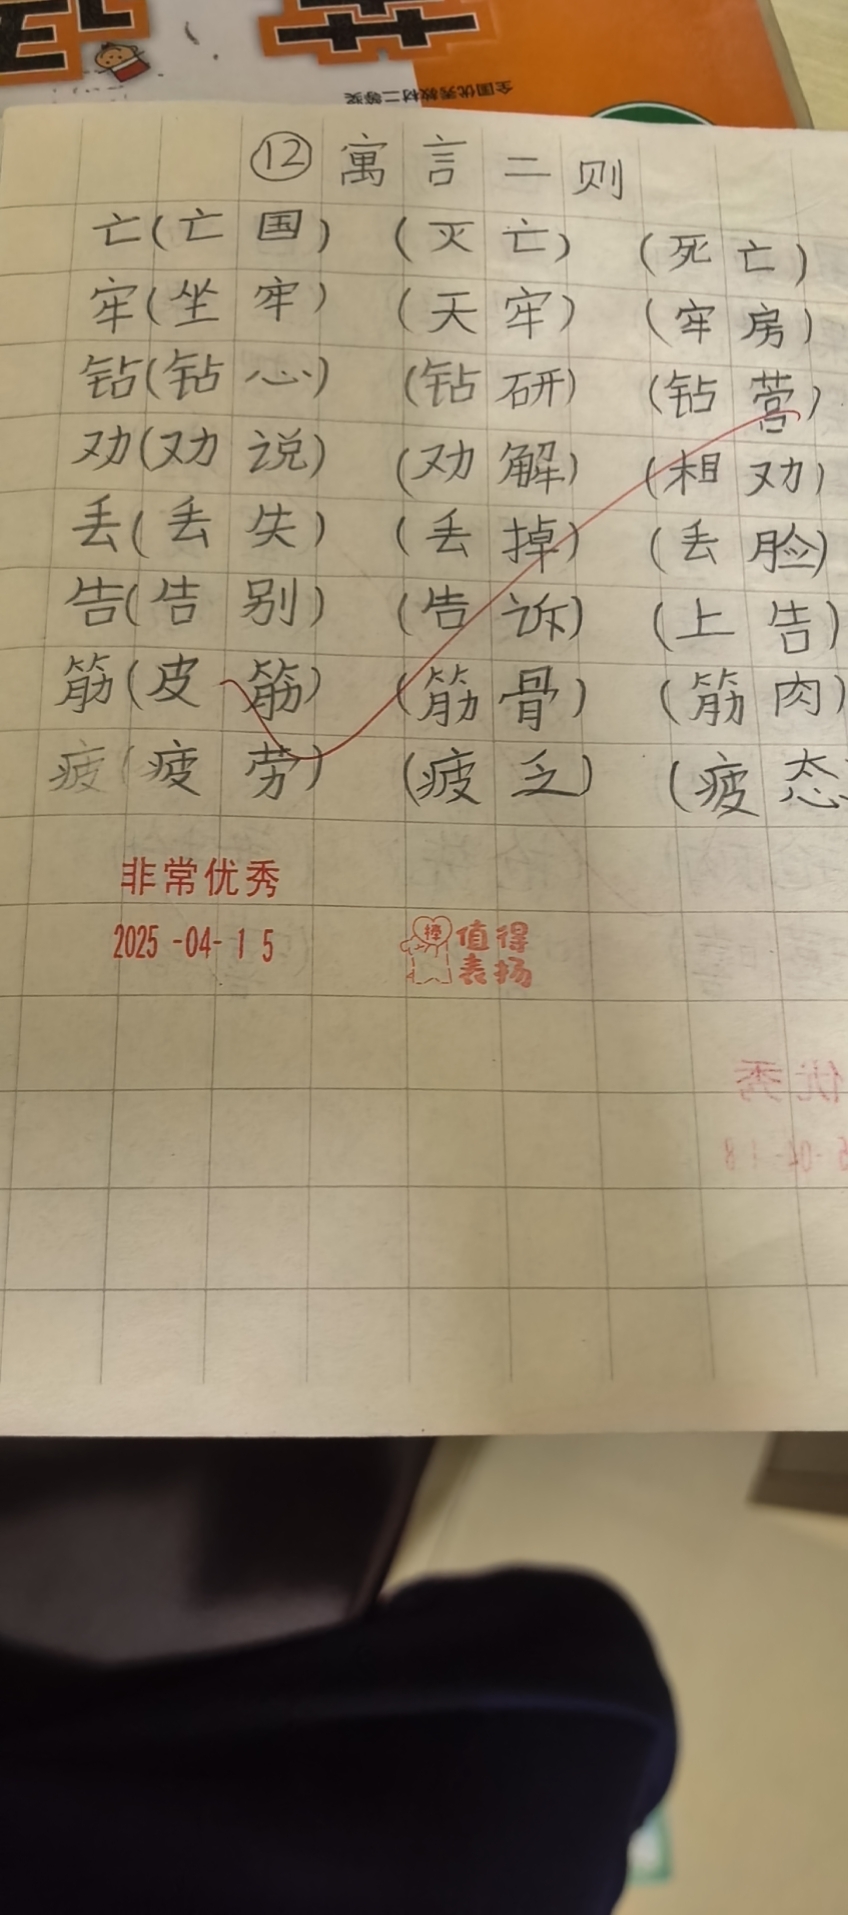 全国优秀教材二等奖
⑫ 寓言二则
亡(亡国) (灭亡) (死亡)
牢(坐牢) (天牢) (牢房)
钻(钻心) (钻研) (钻营)
劝(劝说) (劝解) (相劝)
丢(丢失) (丢掉) (丢脸)
告(告别) (告诉) (上告)
筋(皮筋) (筋骨) (筋肉)
疲(疲劳) (疲乏) (疲态
非常优秀
2025-04-15
棒 值得
表扬